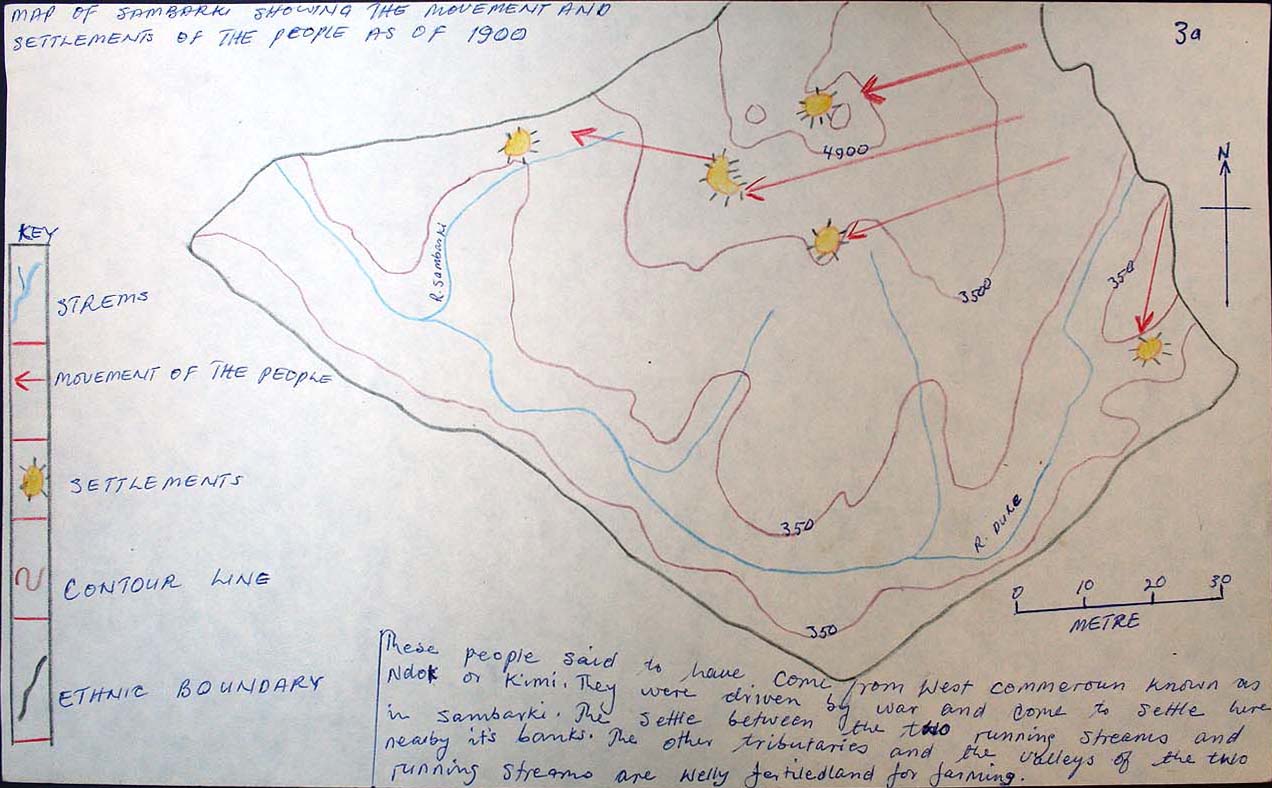 MAP OF SAMBARKI SHOWING THE MOVEMENT AND
SETTLEMENTS OF THE PEOPLE AS OF 1900
3a
4900
N
KEY
R. Sambarki
350
3500
STREMS
MOVEMENT OF THE PEOPLE
SETTLEMENTS
350
R. DURE
CONTOUR LINE
0 10 20 30
METRE
350
ETHNIC BOUNDARY
These people said to have come from West commeroun known as
Ndok or Kimi. They were driven by war and come to settle here
in Sambarki. The settle between the two running streams and
nearby it's banks. The other tributaries and the valleys of the two
running streams are welly fertiledland for farming.